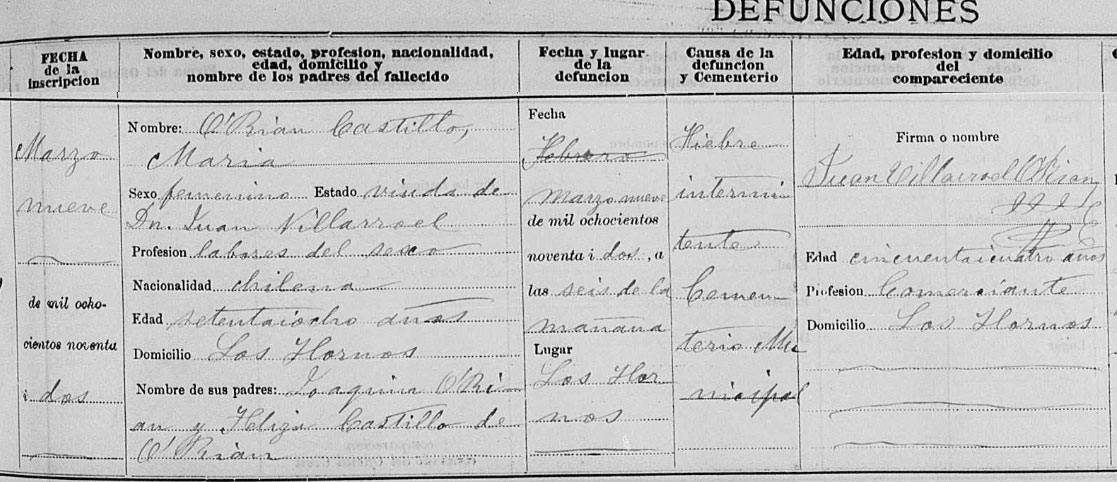 DEFUNCIONES
FECHA
de la
inscripcion
Nombre, sexo, estado, profesion, nacionalidad,
edad, domicilio y
nombre de los padres del fallecido
Fecha y lugar
de la
defuncion
Causa de la
defuncion
y Cementerio
Edad, profesion y domicilio
del
compareciente
Marzo
nueve
de mil ocho-
cientos noventa
i dos
Nombre: O'Rian Castillo,
Maria
Sexo femenino Estado viuda de
Dn. Juan Villarroel
Profesion labores del sexo
Nacionalidad chilena
Edad setentaiocho años
Domicilio Los Hornos
Nombre de sus padres: Joaquin O'Ri-
an y Feliza Castillo de
O'Rian
Fecha
Febrero
Marzo nueve
de mil ochocientos
noventa i dos, a
las seis de la
mañana
Lugar
Los Hor
nos
Fiebre
intermi
tente
Cemen
terio Mu
nicipal
Firma o nombre
Juan Villarroel O'Rian
Edad cincuentaicuatro años
Profesion Comerciante
Domicilio Los Hornos